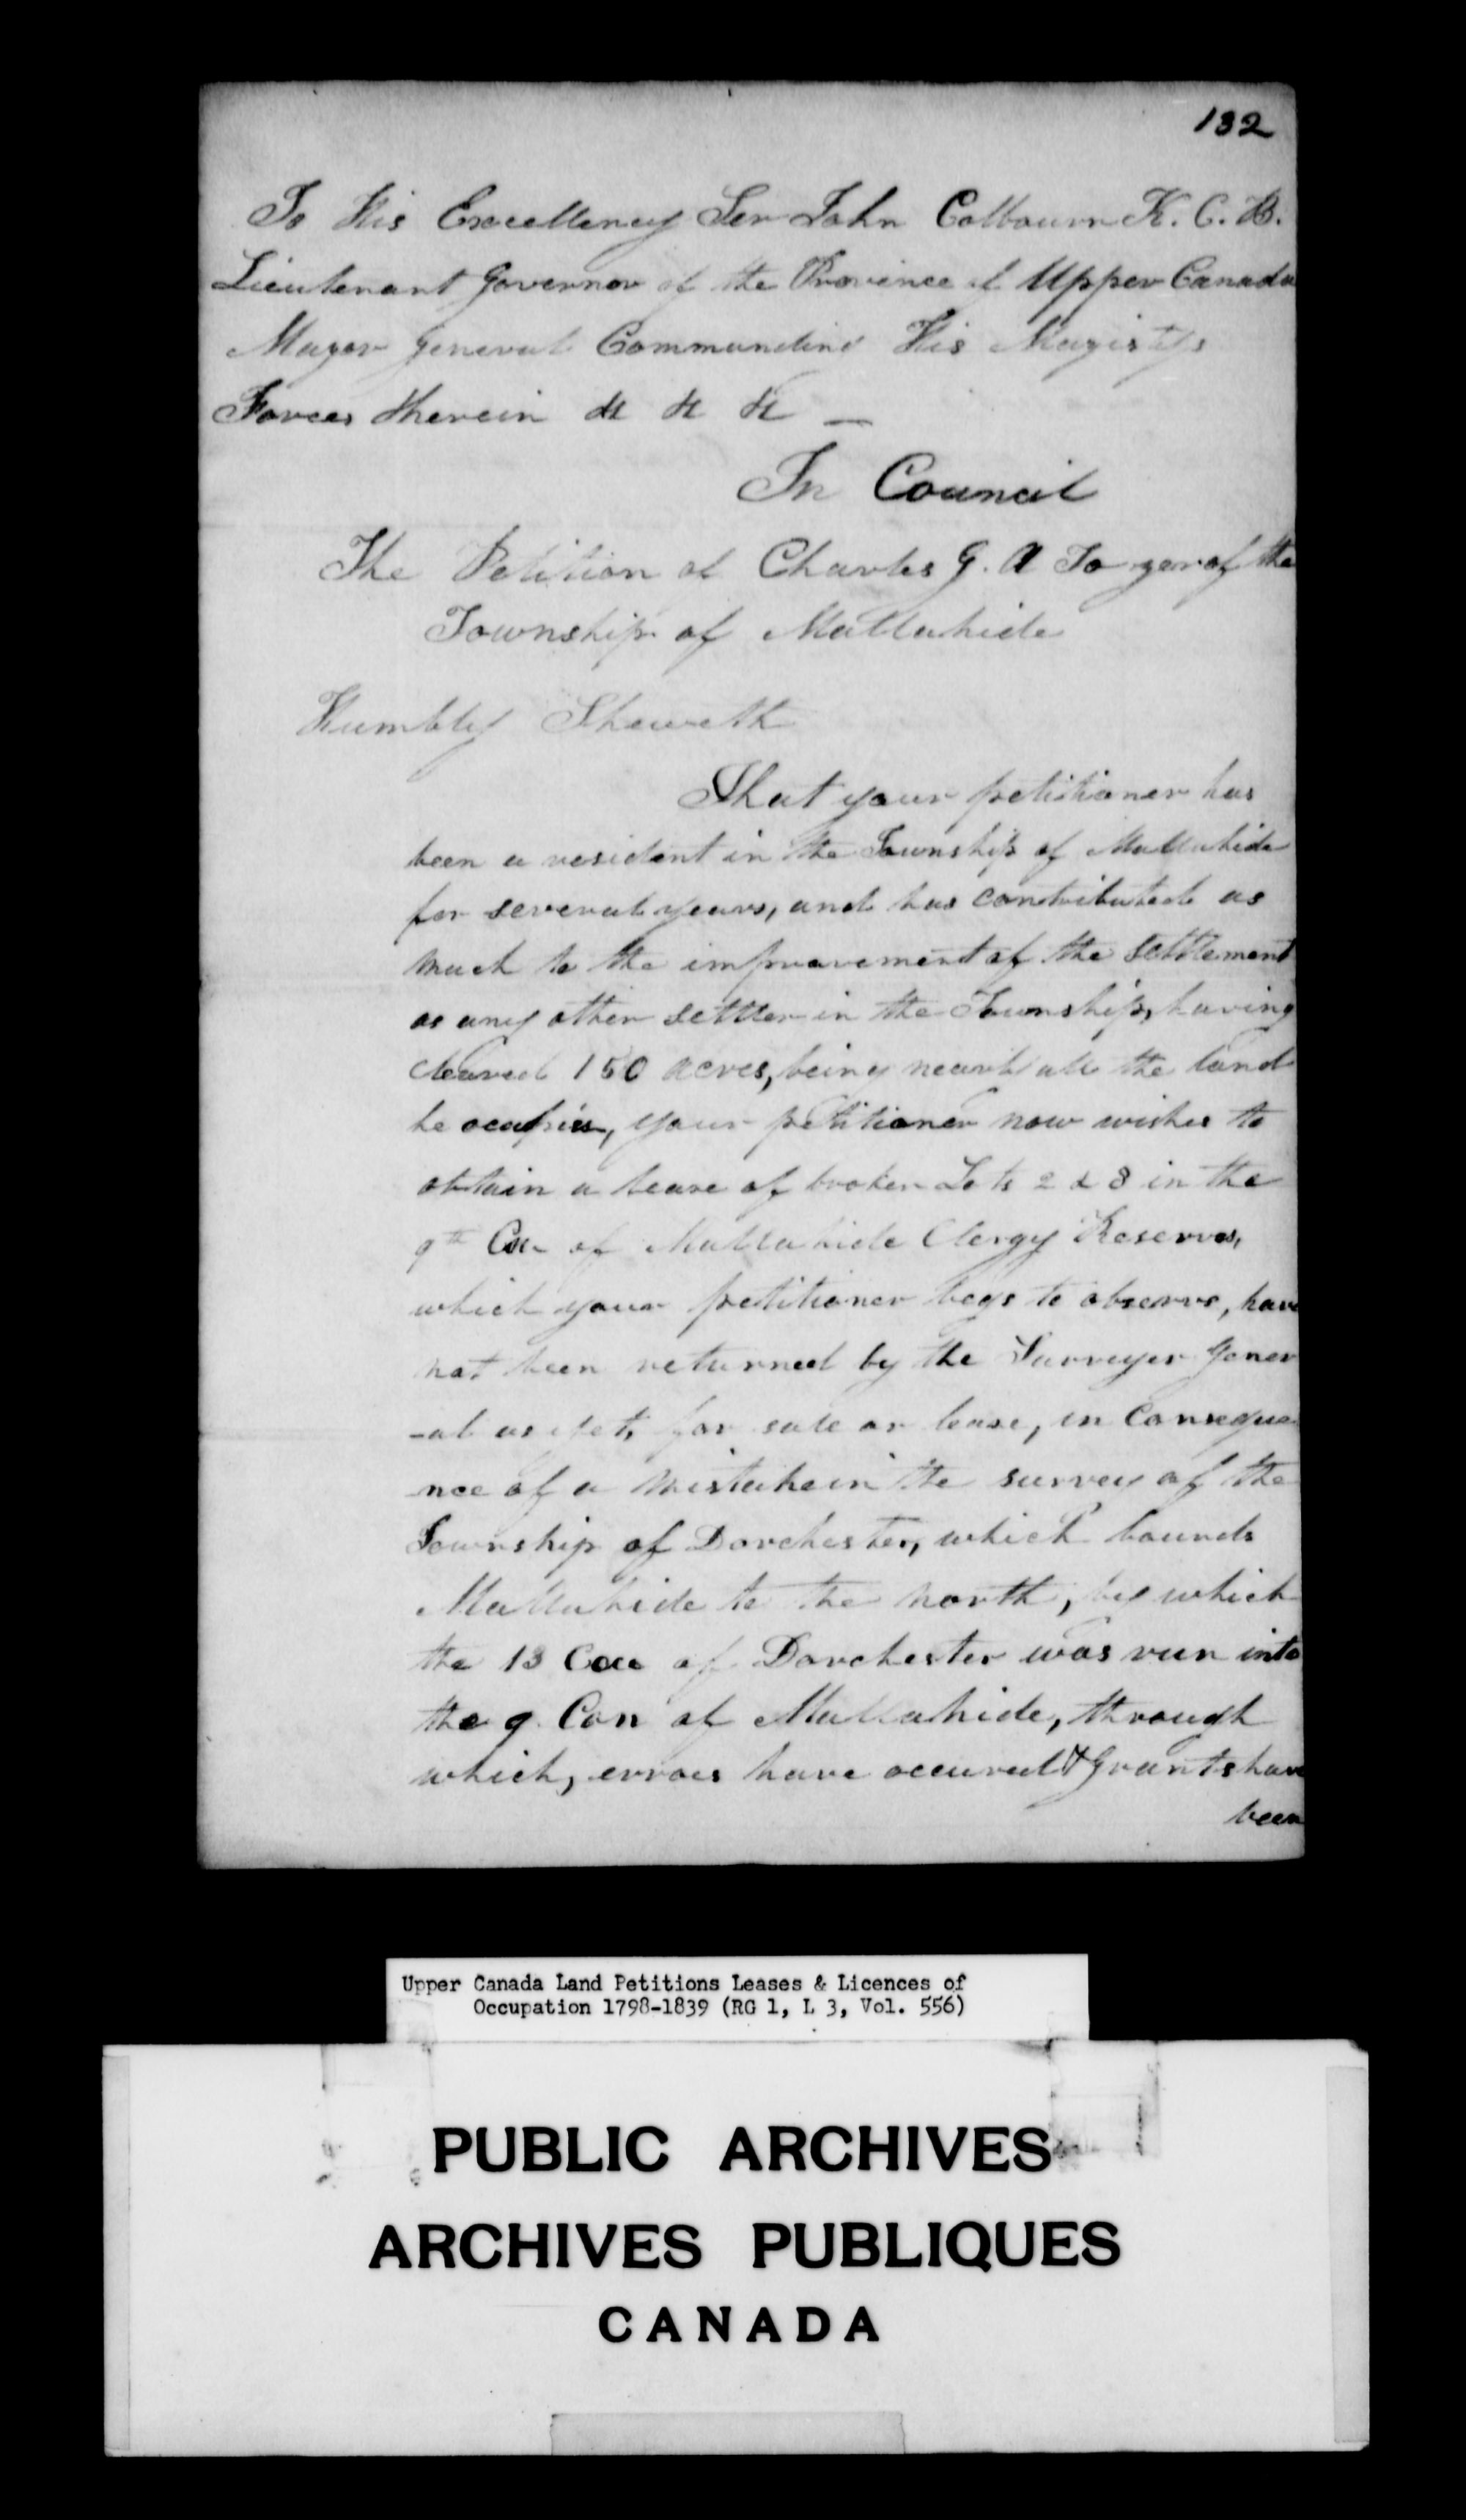 132
To His Excellency Ser John Colbourn K. C. B.
Lieutenant Governor of the Province of Upper Canada
Mayor General Commanding His Magistys
Forces therein &c &c &c —
In Council
The Petition of Charles G. A Tozer of the
Township of Mallahide
Humbly Sheweth
That your petitioner has
been a resident in the Township of Mallahide
for several years, and has contributed as
much to the improvement of the settlement
as any other settler in the Township, having
cleared 150 acres, being nearly all the land
he occupies, your petitioner now wishes to
obtain a lease of broken Lots 2 & 3 in the
9th Con of Mallahide Clergy Reserves,
which your petitioner begs to observe, have
not been returned by the Surveyer Gener
-al as yet, for sale or lease, in Conseque
-nce of a mistake in the survey of the
Township of Dorchester, which bounds
Mallahide to the north, by which
the 13 Con of Dorchester was run into
the 9 Con of Mallahide, through
which, errors have occured & Grants have
been
Upper Canada Land Petitions Leases & Licences of
Occupation 1798-1839 (RG 1, L 3, Vol. 556)
PUBLIC ARCHIVES
ARCHIVES PUBLIQUES
CANADA